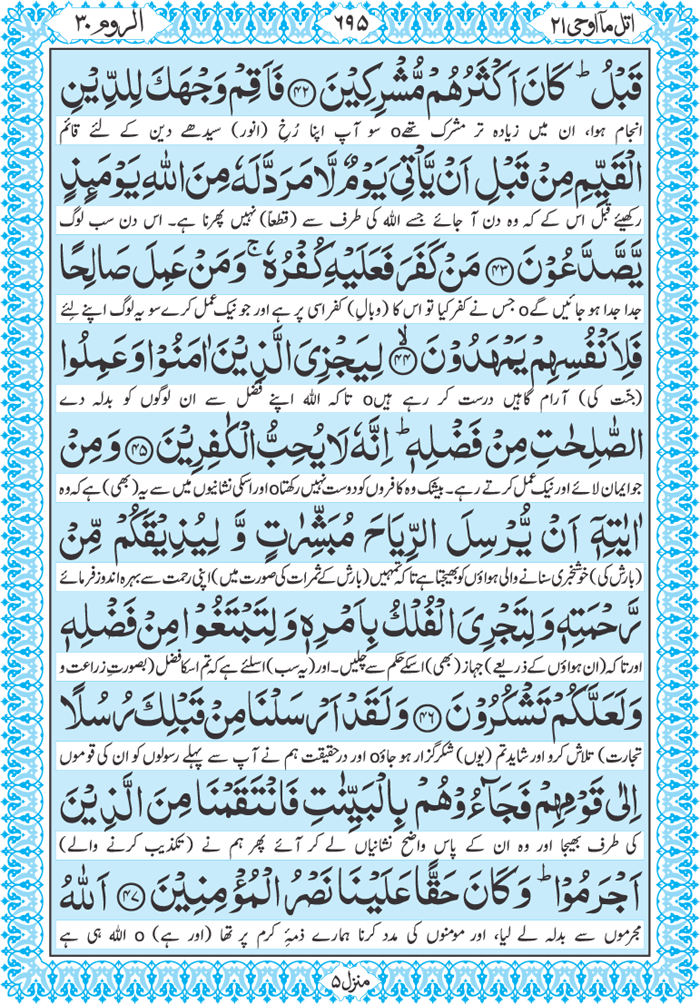 اتل مآ اوحی ۲۱
۶۹۵
الروم ۳۰
قَبْلُ ؕ كَانَ اَكْثَرُهُمْ مُّشْرِكِیْنَ ۴۲ فَاَقِمْ وَجْهَكَ لِلدِّیْنِ
انجام ہوا، ان میں زیادہ تر مشرک تھےo سو آپ اپنا رُخِ (انور) سیدھے دین کے لئے قائم
الْقَیِّمِ مِنْ قَبْلِ اَنْ یَّاْتِیَ یَوْمٌ لَّا مَرَدَّ لَهٗ مِنَ اللّٰهِ یَوْمَىِٕذٍ
رکھیئے قبل اس کے کہ وہ دن آ جائے جسے اللہ کی طرف سے (قطعاً) نہیں پھرنا ہے۔ اس دن سب لوگ
یَّصَّدَّعُوْنَ ۴۳ مَنْ كَفَرَ فَعَلَیْهِ كُفْرُهٗ ۚ وَمَنْ عَمِلَ صَالِحًا
جدا جدا ہو جائیں گےo جس نے کفر کیا تو اس کا (وبالِ) کفر اسی پر ہے اور جو نیک عمل کرے سو یہ لوگ اپنے لئے
فَلِاَنْفُسِهِمْ یَمْهَدُوْنَ ۙ۴۴ لِیَجْزِیَ الَّذِیْنَ اٰمَنُوْا وَعَمِلُوا
(جنّت کی) آرام گاہیں درست کر رہے ہیںo تاکہ اللہ اپنے فضل سے ان لوگوں کو بدلہ دے
الصّٰلِحٰتِ مِنْ فَضْلِهٖ ؕ اِنَّهٗ لَا یُحِبُّ الْكٰفِرِیْنَ ۴۵ وَمِنْ
جو ایمان لائے اور نیک عمل کرتے رہے۔ بیشک وہ کافروں کو دوست نہیں رکھتاo اور اسکی نشانیوں میں سے یہ (بھی) ہے کہ وہ
اٰیٰتِهٖۤ اَنْ یُّرْسِلَ الرِّیَاحَ مُبَشِّرٰتٍ وَّ لِیُذِیْقَكُمْ مِّنْ
(بارش کی) خوشخبری سنانے والی ہواؤں کو بھیجتا ہے تاکہ تمہیں (بارش کے ثمرات کی صورت میں) اپنی رحمت سے بہرہ اندوز فرمائے
رَّحْمَتِهٖ وَلِتَجْرِیَ الْفُلْكُ بِاَمْرِهٖ وَلِتَبْتَغُوْا مِنْ فَضْلِهٖ
اور تاکہ (ان ہواؤں کے ذریعے) جہاز (بھی) اسکے حکم سے چلیں۔ اور (یہ سب) اسلئے ہے کہ تم اسکا فضل (بصورتِ زراعت و
وَلَعَلَّكُمْ تَشْكُرُوْنَ ۴۶ وَلَقَدْ اَرْسَلْنَا مِنْ قَبْلِكَ رُسُلًا
تجارت) تلاش کرو اور شاید تم (یوں) شکر گزار ہو جاؤo اور درحقیقت ہم نے آپ سے پہلے رسولوں کو ان کی قوموں
اِلٰى قَوْمِهِمْ فَجَآءُوْهُمْ بِالْبَیِّنٰتِ فَانْتَقَمْنَا مِنَ الَّذِیْنَ
کی طرف بھیجا اور وہ ان کے پاس واضح نشانیاں لے کر آئے پھر ہم نے (تکذیب کرنے والے)
اَجْرَمُوْا ؕ وَكَانَ حَقًّا عَلَیْنَا نَصْرُ الْمُؤْمِنِیْنَ ۴۷ اَللّٰهُ
مجرموں سے بدلہ لے لیا، اور مومنوں کی مدد کرنا ہمارے ذمۂ کرم پر تھا (اور ہے) o اللہ ہی ہے
منزل ۵